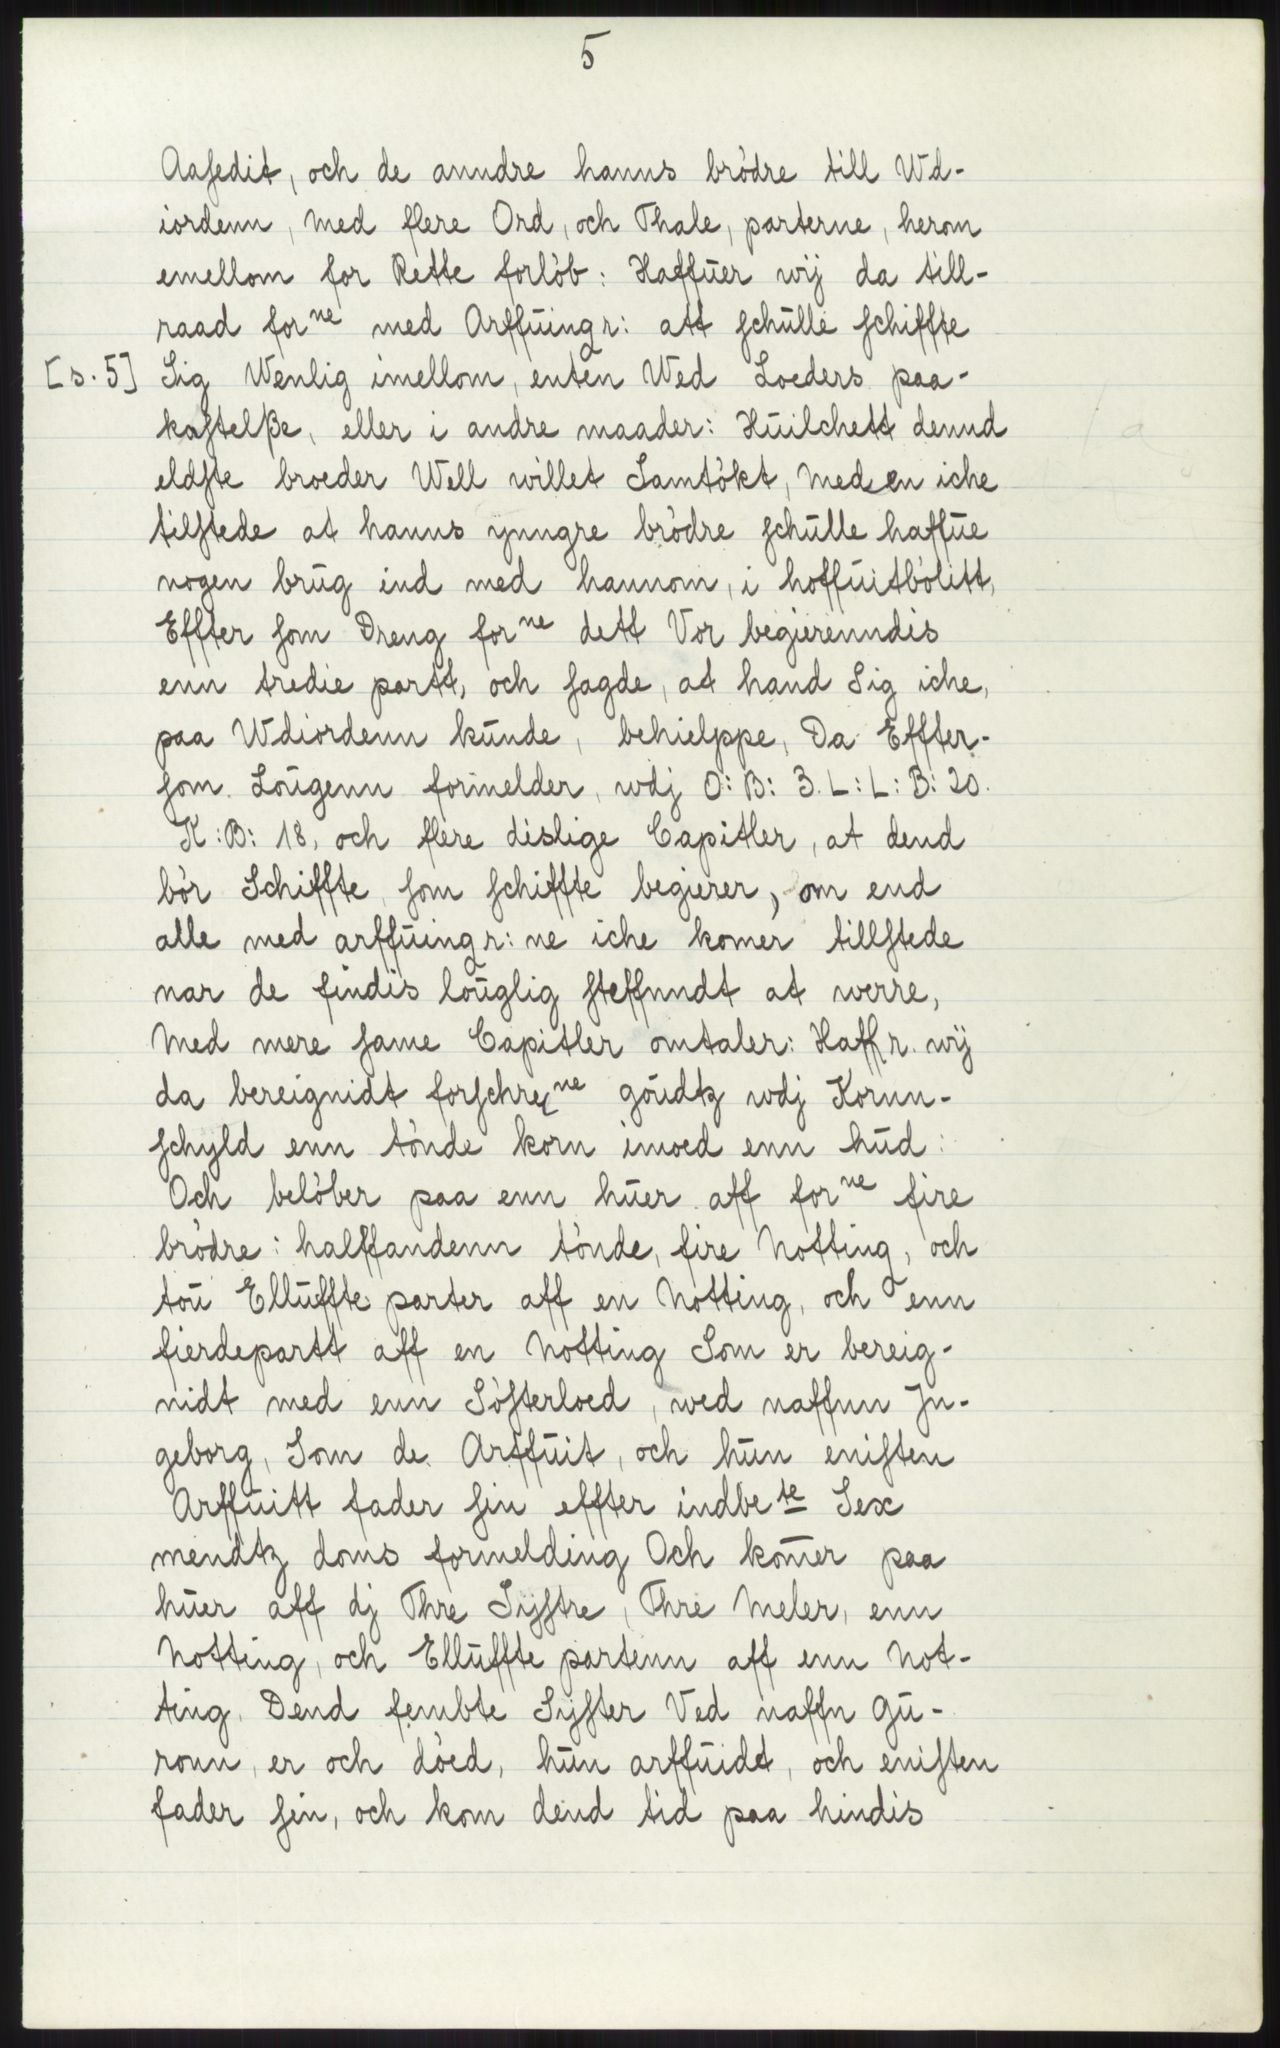 5
Aasedit, och de anndre hanns brödre till Wd-
iordenn, Med flere Ord, och Thale, parterne, herom
emellom for Rette forlöb: Haffuer wij da till-
raad forne med Arffuingr: att schulle schiffte
[s. 5] Sig Wenlig imellom, enten Wed Loeders paa-
kastelße, eller i andre maader: Huilchett dennd
eldste broeder Well willet Samtökt, Meden iche
tilstede at hanns ynngre brödre schulle haffue
nogen brug ind med hannom, i hoffuitbölitt,
Effter som Dreng forne dett Vor begierenndis
enn tredie partt, och sagde, at hand Sig iche,
paa Wdiordenn kunde, behielppe, Da Effter-
som Lougenn formelder, wdj O: B: 3. L: L: B: 20.
K: B: 18, och flere dislige Capitler, at dend
bör Schiffte, som schiffte begierer, om end
alle med arffuingr: ne iche komer tillstede
nar de findis louglig steffnndt at werre,
Med mere same Capitler omtaler: Haffr. wij
da bereignidt forschrene goudtz wdj Kornn-
schyld enn tönde korn imoed enn hud:
Och belöber paa enn huer aff forne fire
brödre: halffandenn tönde, fire Notting, och
tou Elluffte parter aff en Notting, och enn
fierdepartt aff en Notting Som er bereig-
nidt med enn Sösterloed, wed naffnn In-
geborg, Som de Arffuit, och hun enisten
Arffuitt fader sin effter indbete Sex
mendtz doms formelding Och kom̄er paa
huer aff dj Thre Systre, Thre Meler, enn
Notting, och Elluffte partenn aff enn Not-
ting. Dend fembte Syster Ved naffn Gu-
ronn, er och döed, hun arffuidt, och enisten
fader sin, och kom dend tid paa hindis